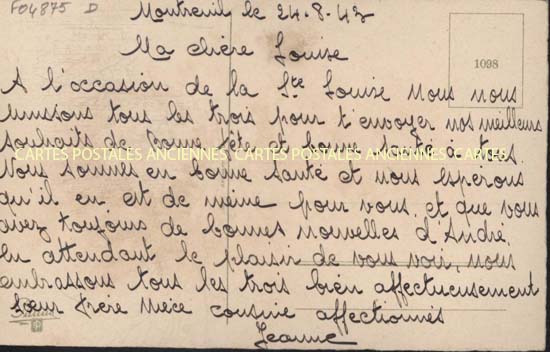 F04875 D
Montreuil le 24-8-43
Ma chère Louise
1098
A l'occasion de la Ste Louise nous nous
unissons tous les trois pour t'envoyer nos meilleurs
souhaits de bonne fête et bonne santé à tous.
CARTES POSTALES ANCIENNES CARTES POSTALES ANCIENNES CARTES POSTALES ANCIENNES
Nous sommes en bonne santé et nous esperons
qu'il en est de même pour vous et que vous
avez toujours de bonnes nouvelles d'André.
En attendant le plaisir de vous voir, nous
embrassons tous les trois bien affectueusement
Sœur frère nièce cousine affectionnés
Jeanne